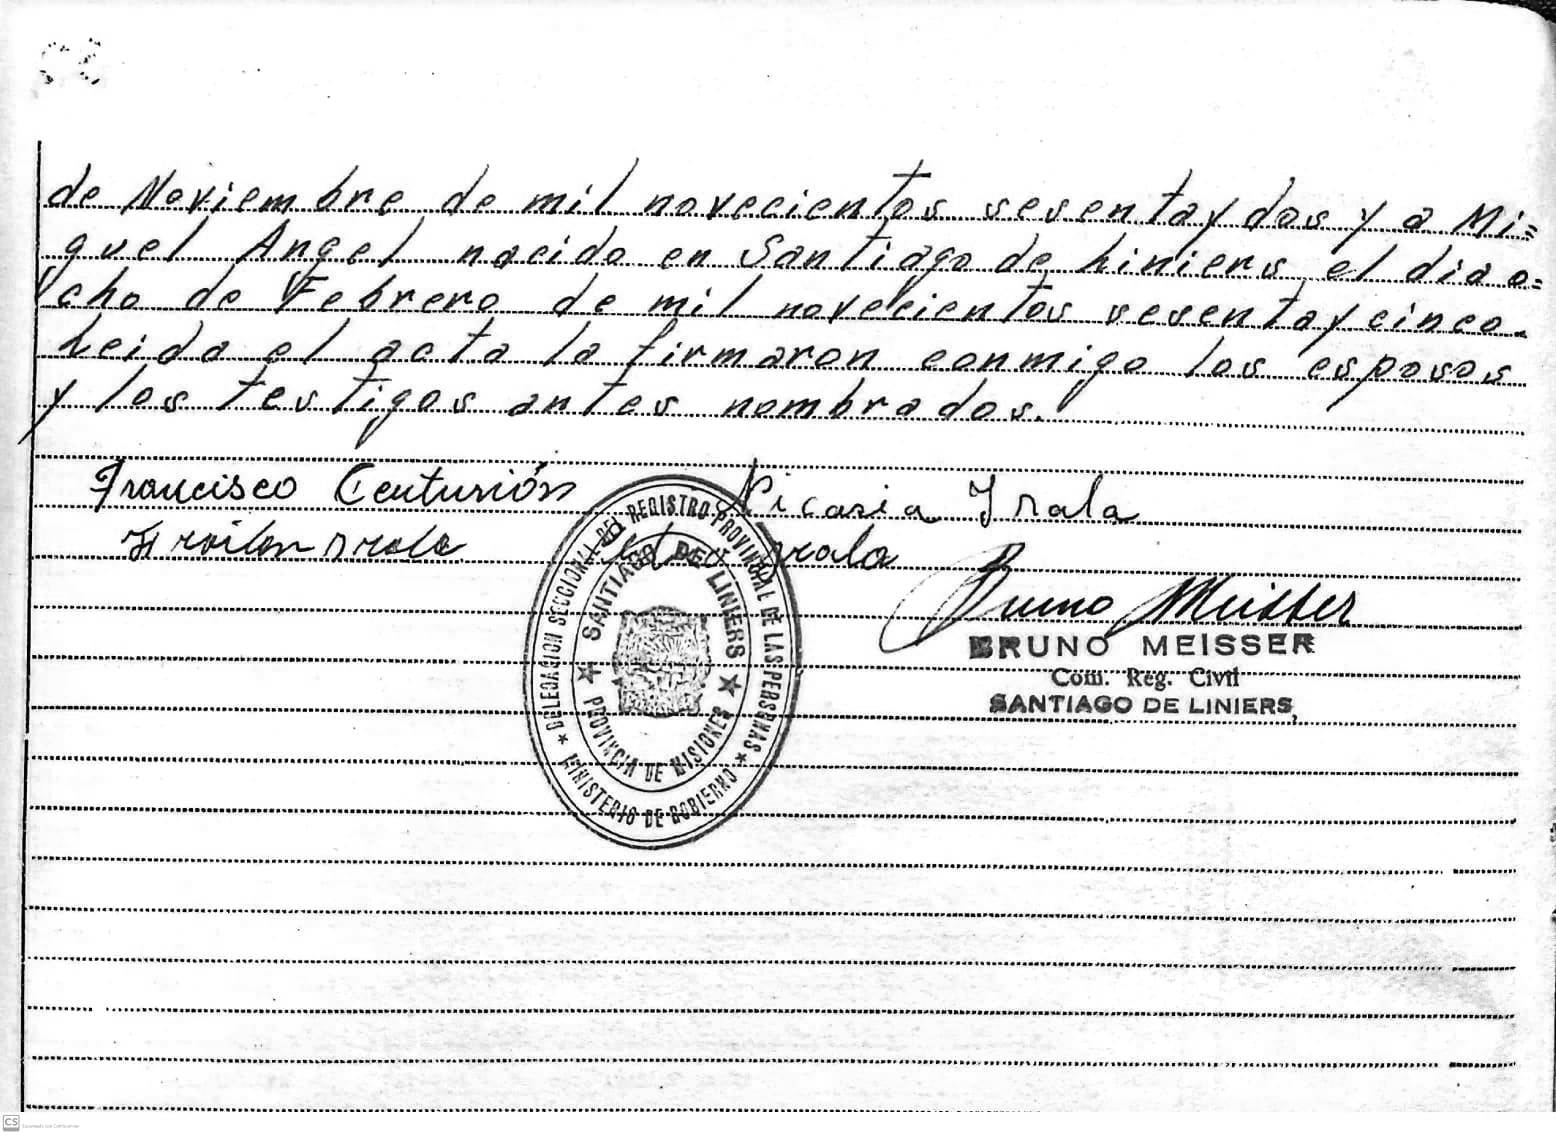 de Noviembre de mil novecientos sesentaydos y a Mi=
guel Angel nacido en Santiago de Liniers el dia o=
cho de Febrero de mil novecientos sesentaycinco.
Leida el acta la firmaron conmigo los esposos
y los testigos antes nombrados.
Francisco Centurión Nicasia Irala
Froilan Irala Irala
Bruno Meisser
BRUNO MEISSER
Com. Reg. Civil
SANTIAGO DE LINIERS
DELEGACION SECCIONAL DEL REGISTRO PROVINCIAL DE LAS PERSONAS
MINISTERIO DE GOBIERNO
SANTIAGO DE LINIERS
PROVINCIA DE MISIONES
CS